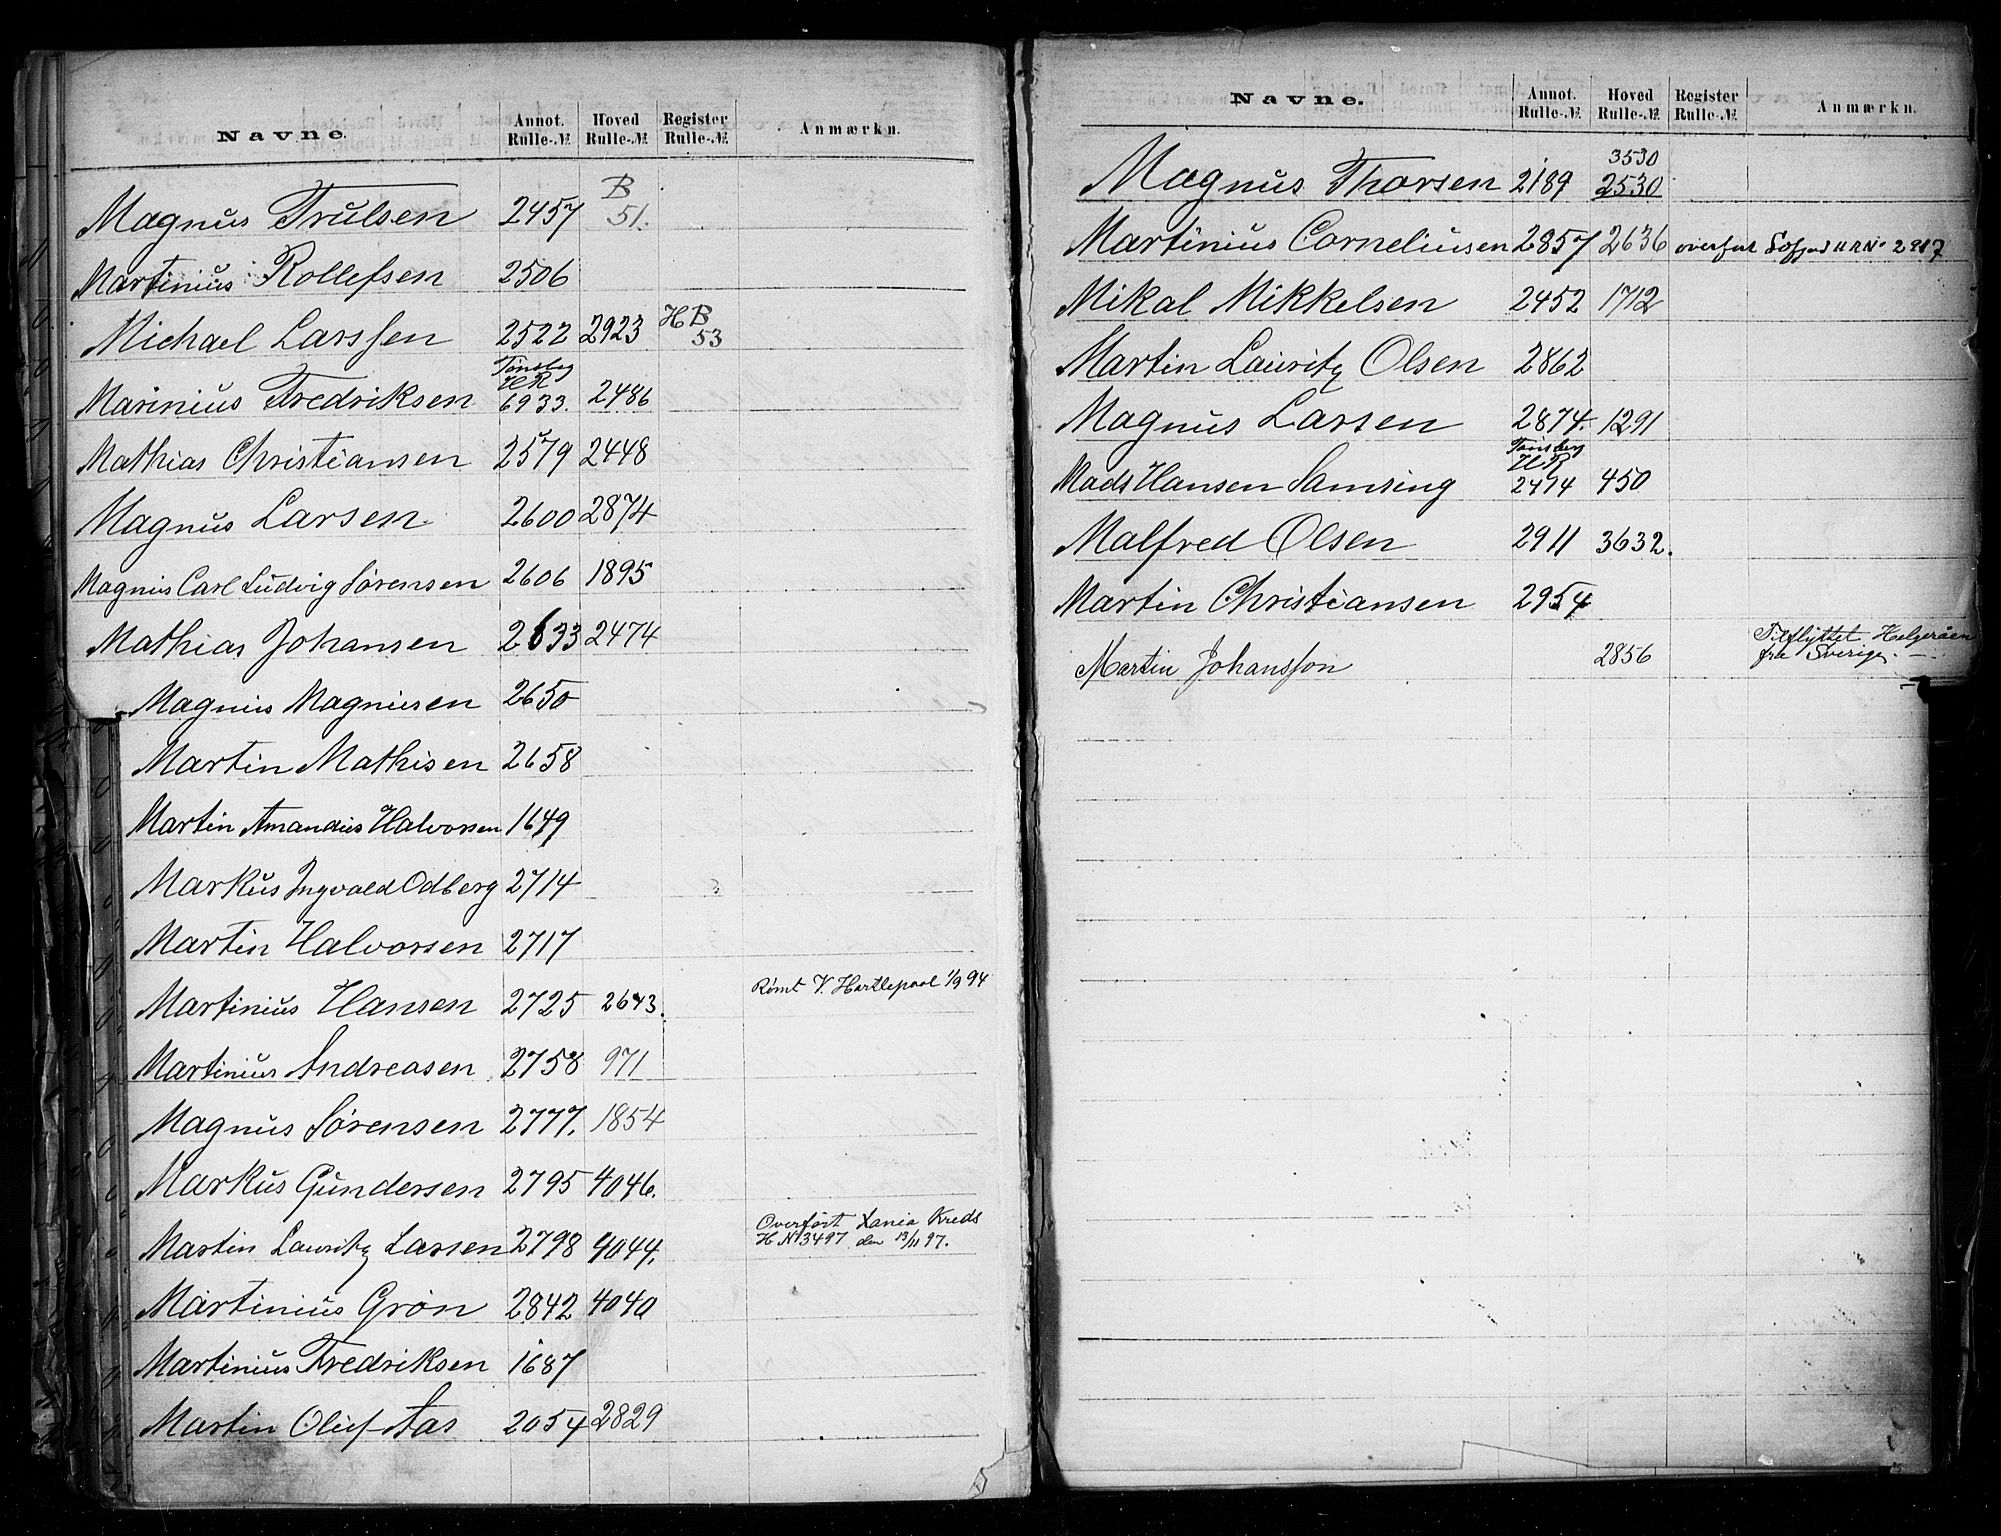 Navne. Annot. Rulle-№ Hoved Rulle-№ Register Rulle-№ Anmærkn.
Magnus Trulsen 2457 B 51.
Martinius Rollefsen 2506
Michael Larssen 2522 2923 HB 53
Marinius Fredriksen Tønsberg HR 6933. 2486
Mathias Christiansen 2579 2448
Magnus Larsen 2600 2874
Magnus Carl Ludvig Sørensen 2606 1895
Mathias Johansen 2633 2474
Magnus Magnusen 2650
Martin Mathisen 2658
Martin Amandus Halvorsen 1649
Markus Ingvald Odberg 2714
Martin Halvorsen 2717
Martinius Hansen 2725 2643. Rømt V. Hartlepool 1/9 94
Martinius Andreasen 2758 971
Magnus Sørensen 2777. 1854
Markus Gundersen 2795 4046.
Martin Lauritz Larsen 2798 4044. Overført Xania Kreds
H. № 3497 den 13/11 97.
Martinius Grøn 2842 4040
Martinius Fredriksen 1687
Martin Oluf Aas 2054 2829
Navne. Annot. Rulle-№ Hoved Rulle-№ Register Rulle-№ Anmærkn.
Magnus Thorsen 2189 3530 2530
Martinius Corneliusen 2857 2636 overført HRNo 2917
Mikal Mikkelsen 2452 1712
Martin Lauritz Olsen 2862
Magnus Larsen 2874. 1291
Mads Hansen Samsing Tønsberg HR 2474 450
Malfred Olsen 2911 3632.
Martin Christiansen 2954
Martin Johansson 2856 Tilflyttet Helgeråen
fra Sverige. —